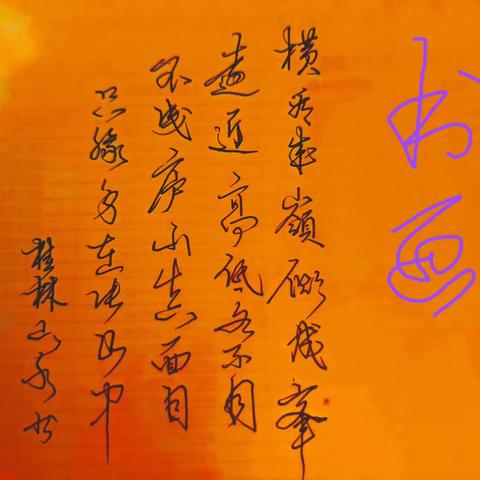 书画
横看成嶺侧成峯
遠近高低各不同
不识庐山真面目
只缘身在此山中
桂林山水书